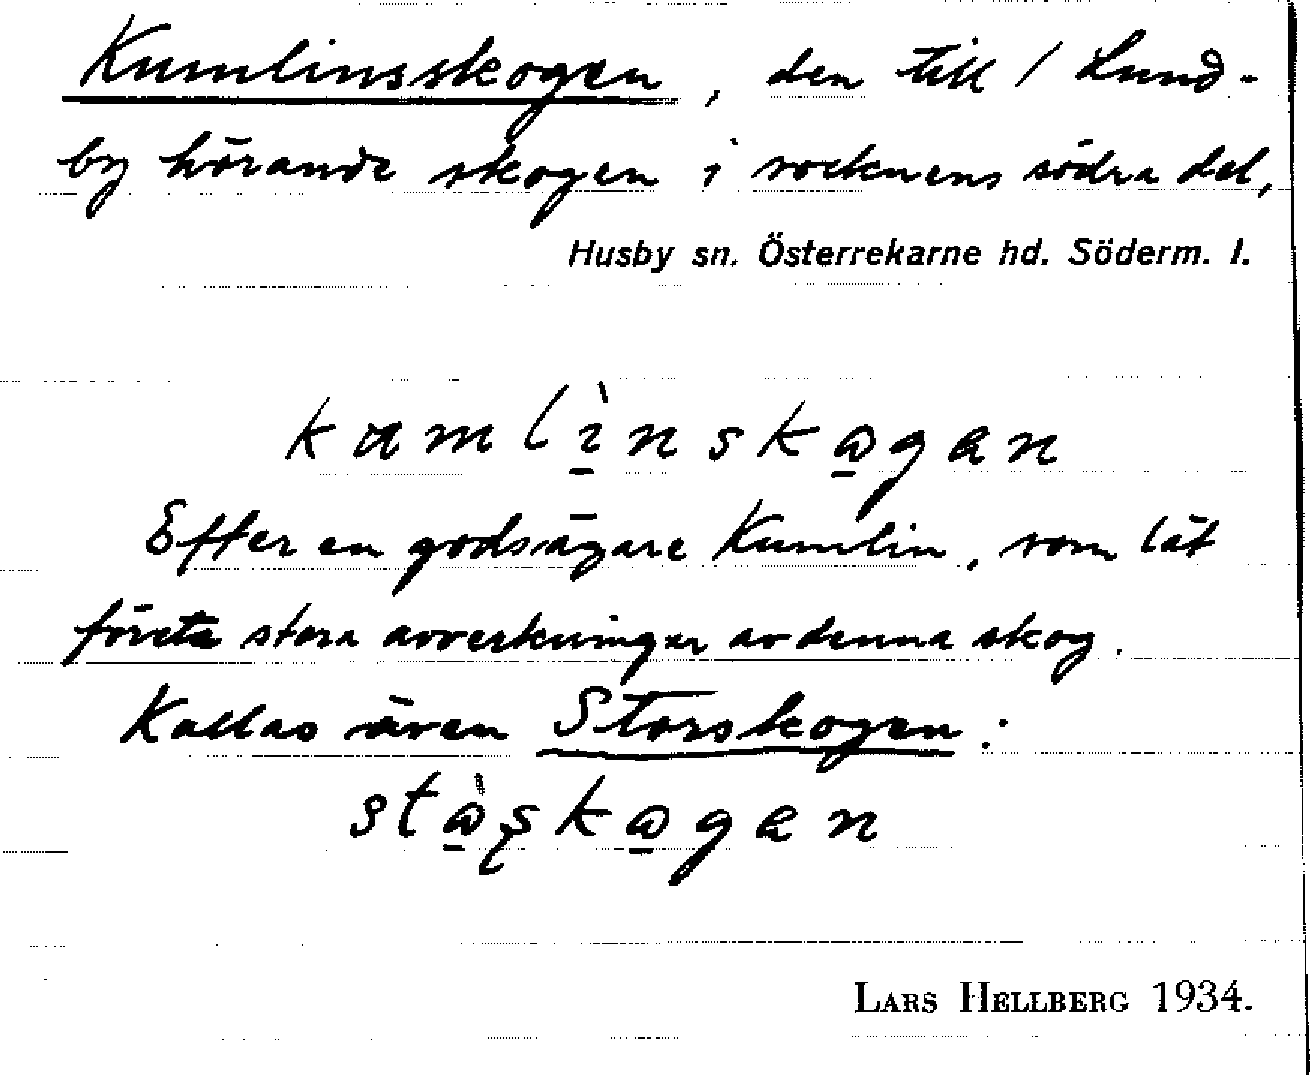 Kumlinsskogen, den till / Lund-
by hörande skogen i socknens södra del,
Husby sn. Österrekarne hd. Söderm. l.
kumlìnskogen
Efter en godsägare Kumlin, som lät
företa stora avverkningar av denna skog.
Kallas även Storskogen:
LARS HELLBERG 1934.